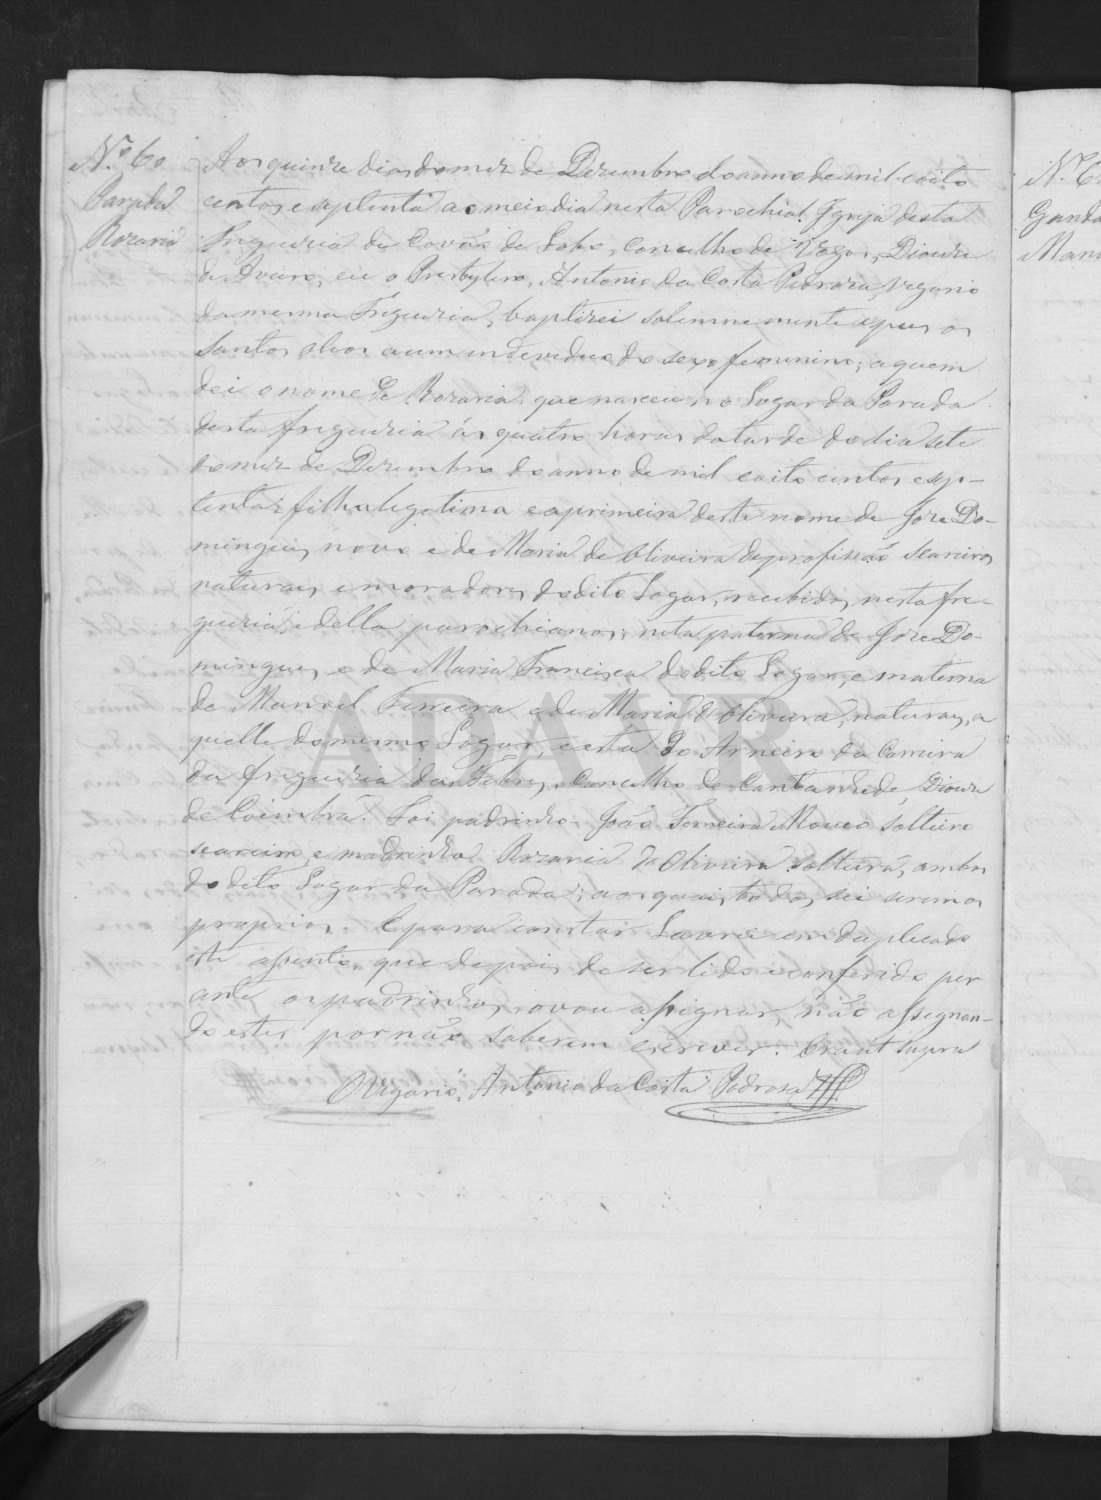 Nº 60
Parada
Rozaria
Aos quinze dias do mez de Dezembro do anno de mil e oito
centos e septenta ao meio dia nesta Parochial Igreja desta
Freguezia de Covão do Lobo, Concelho de Vagos, Diocese
de Aveiro, eu o Presbytero, Antonio da Costa Pedroza, Vegario
da mesma Freguezia, baptizei solemnemente e puz os
Santos oleos a um individuo do sexo femenino; a quem
dei o nome de Rozaria que nasceu no Logar da Parada
desta freguezia ás quatro horas da tarde do dia sete
do mez de Dezembro do anno de mil e oito centos e sep-
tenta: filha legetima e a primeira deste nome de Joze Do-
mingues novo e de Maria de Oliveira de profissão Seareiros
naturaes e moradores do dito Logar, recebidos nesta fre-
guezia e della parochianos; neta paterna de Joze Do-
mingues e de Maria Francisca do dito Logar, e materna
de Manoel Ferreira e de Maria d'Oliveira, naturaes, a
quelle do mesmo Logar, e esta do Arneiro da Carreira
da freguezia das Febres, Concelho de Cantanhede, Diocese
de Coimbra. Foi padrinho João Ferreira Mouco solteiro
seareiro, e madrinha Rozaria de Oliveira solteira, ambos
do dito Logar da Parada; aos quaes todos sei serem os
proprios. E para constar Lavrei em duplicado
este assento, que depois de ser lido e conferido per
ante os padrinhos, o vou assignar, não assignan-
do estes por não saberem escrever. Era ut supra
O Vegario, Antonio da Costa Pedroza
Nº 6
Ganda
Man
ADAVR